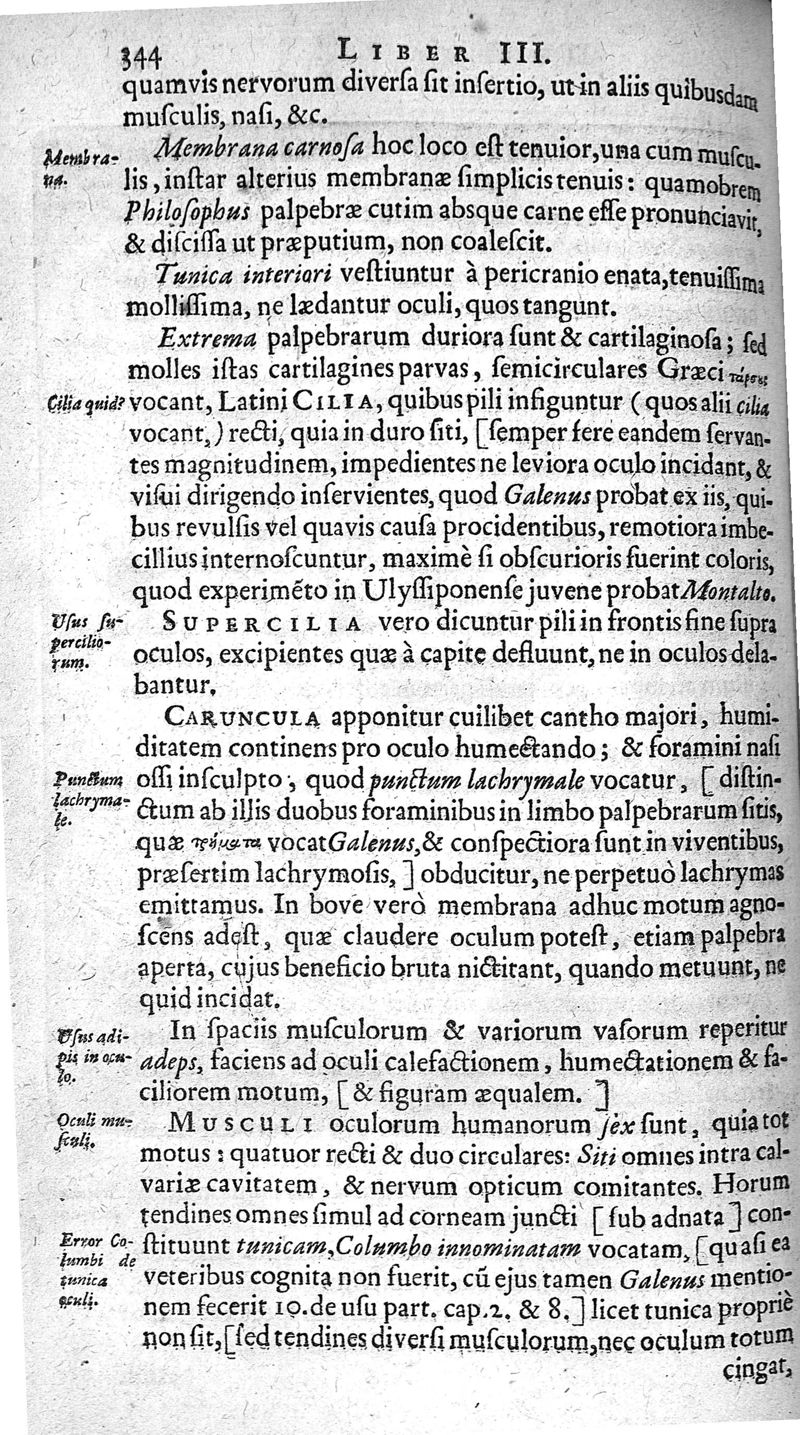 344 LIBER III.
quamvis nervorum diverſa ſit inſertio, ut in aliis quibusdam
muſculis, naſi, &c.
Membra-
na.
Membrana carnoſa hoc loco eſt tenuior, una cum muſcu-
lis, inſtar alterius membranæ ſimplicis tenuis: quamobrem
Philoſophus palpebræ cutim absque carne eſſe pronunciavit,
& diſciſſa ut præputium, non coaleſcit.
Tunica interiori veſtiuntur à pericranio enata, tenuiſſima
molliſſima, ne lædantur oculi, quos tangunt.
Extrema palpebrarum duriora ſunt & cartilaginoſa; ſed
molles iſtas cartilagines parvas, ſemicirculares Græci
Cilia quid?
vocant, Latini CILIA, quibus pili infiguntur (quos alii cilia
vocant,) recti, quia in duro ſiti, [ſemper fere eandem ſervan-
tes magnitudinem, impedientes ne leviora oculo incidant, &
viſui dirigendo inſervientes, quod Galenus probat ex iis, qui-
bus revulſis vel quavis cauſa procidentibus, remotiora imbe-
cillius internoſcuntur, maximè ſi obſcurioris fuerint coloris,
quod experimẽto in Ulyſſiponenſe juvene probat Montalto.
Uſus ſu-
percilio-
rum.
SUPERCILIA vero dicuntur pili in frontis fine ſupra
oculos, excipientes quæ à capite defluunt, ne in oculos dela-
bantur.
CARUNCULA apponitur cuilibet cantho majori, humi-
ditatem continens pro oculo humectando; & foramini naſi
Punctum
lachryma-
le.
oſſi inſculpto, quod punctum lachrymale vocatur, [diſtin-
ctum ab illis duobus foraminibus in limbo palpebrarum ſitis,
quæ τρήματα vocat Galenus, & conſpectiora ſunt in viventibus,
præſertim lachrymoſis,] obducitur, ne perpetuò lachrymas
emittamus. In bove verò membrana adhuc motum agno-
ſcens adeſt, quæ claudere oculum poteſt, etiam palpebra
aperta, cujus beneficio bruta nictitant, quando metuunt, ne
quid incidat.
Uſus adi-
pis in ocu-
lo.
In ſpaciis muſculorum & variorum vaſorum reperitur
adeps, faciens ad oculi calefactionem, humectationem & fa-
ciliorem motum, [& figuram æqualem.]
Oculi mu-
ſculi.
MUSCULI oculorum humanorum ſex ſunt, quia tot
motus: quatuor recti & duo circulares: Siti omnes intra cal-
variæ cavitatem, & nervum opticum comitantes. Horum
tendines omnes ſimul ad corneam juncti [ſub adnata] con-
Error Co-
lumbi de
tunica
oculi.
ſtituunt tunicam, Columbo innominatam vocatam, [quaſi ea
veteribus cognita non fuerit, cũ ejus tamen Galenus mentio-
nem fecerit 10. de uſu part. cap. 2. & 8.] licet tunica propriè
non ſit, [ſed tendines diverſi muſculorum, nec oculum totum
cingat,